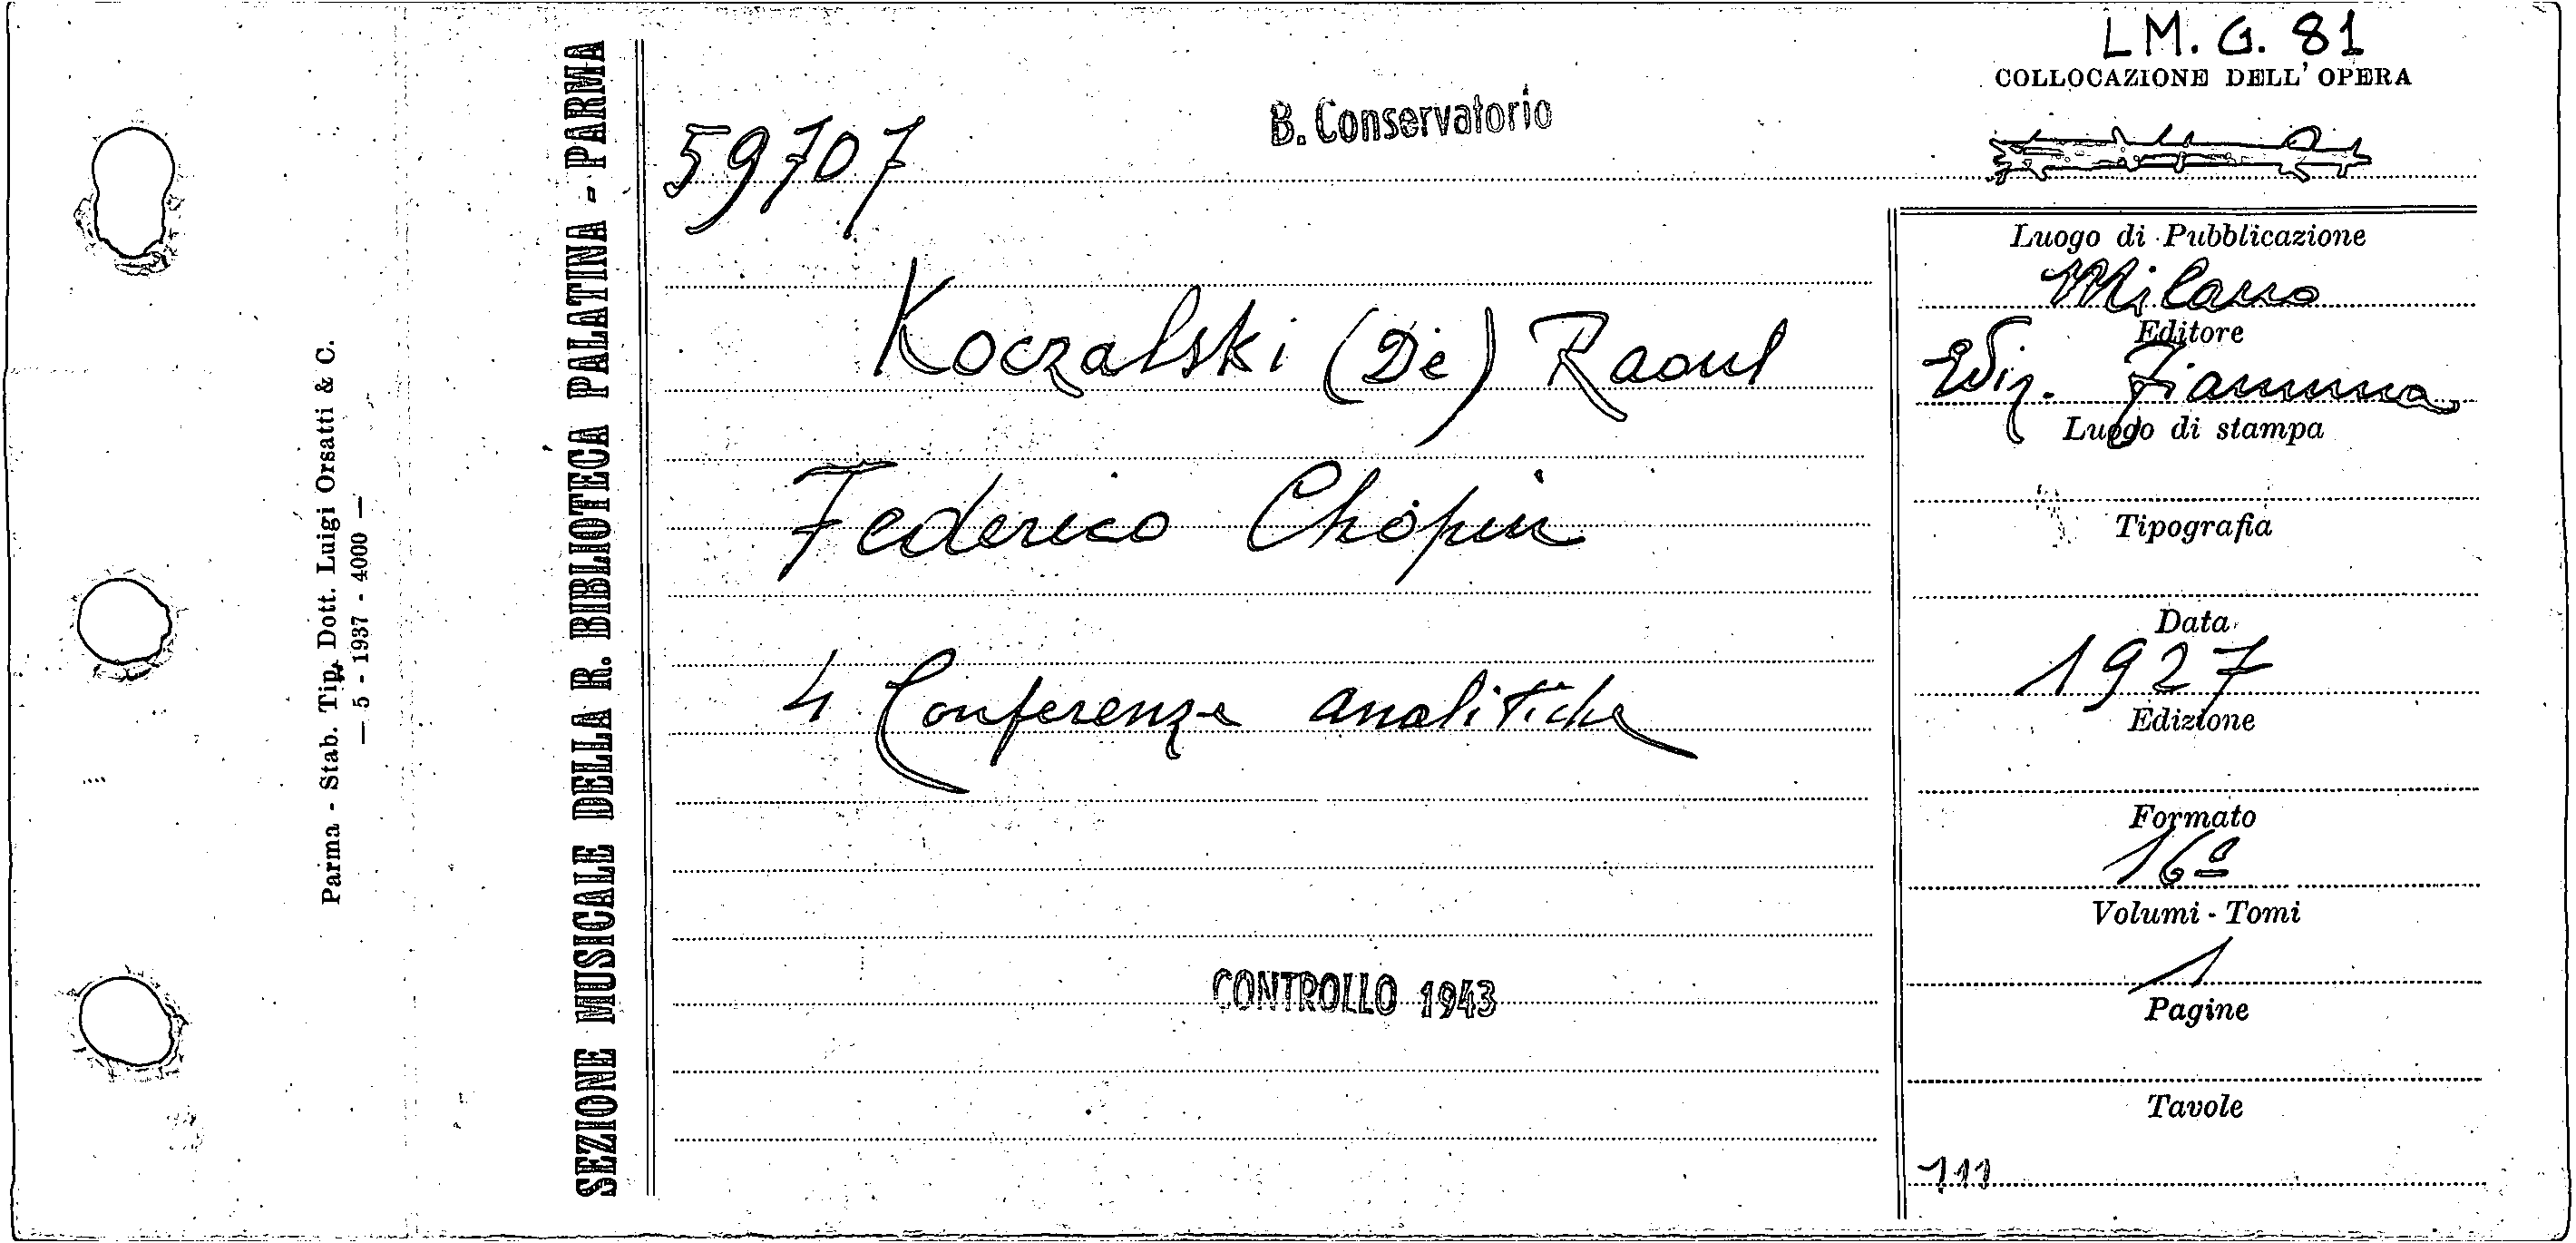 LM. G. 81
COLLOCAZIONE DELL' OPERA
B. Conservatorio
59707
Koczalski (De) Raoul
Federico Chopin
4 Conferenze analitiche
CONTROLLO 1943
Luogo di Pubblicazione
Milano
Editore
Ediz. Fiamma
Luogo di stampa
Tipografia
Data
1927
Edizione
Formato
16º
Volumi - Tomi
1
Pagine
Tavole
111
SEZIONE MUSICALE DELLA R. BIBLIOTECA PALATINA - PARMA
Parma - Stab. Tip. Dott. Luigi Orsatti & C.
— 5 - 1937 - 4000 —